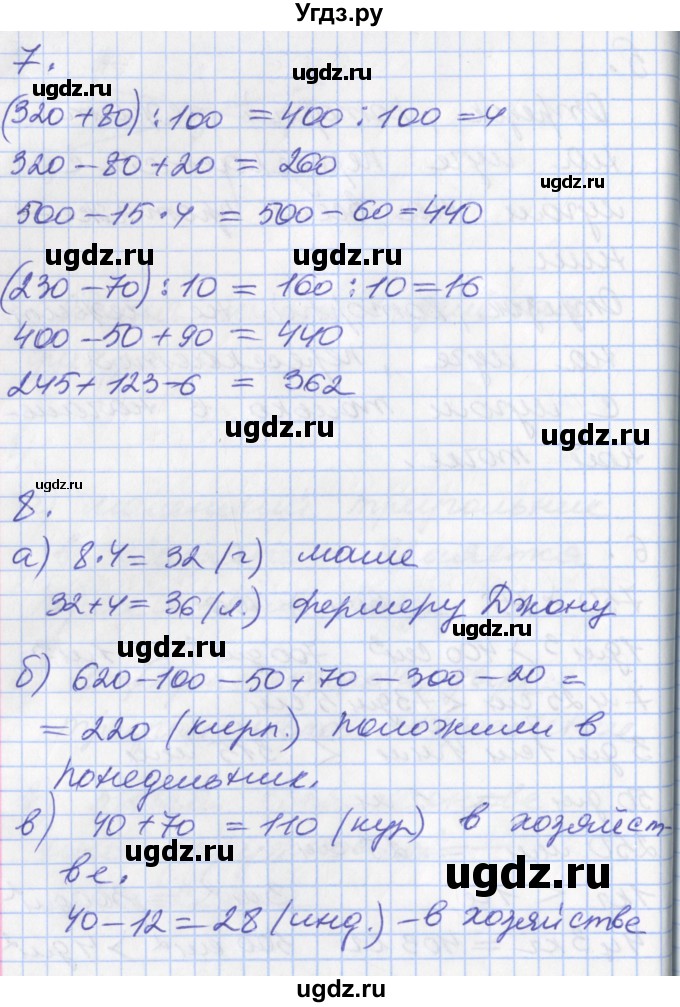 Угдз.ру
7.
ugdz.ru
(320+80):100 = 400:100 = 4
ugdz.ru
320-80+20 = 260
ugdz.ru
500-15·4 = 500-60=440
ugdz.ru ugdz.ru
(230-70):10 = 160:10=16
400-50+90 = 440
245+123-6 = 362
ugdz.ru
ugdz.ru
ugdz.ru
8.
а) 8·4= 32 (г) маше
32+4= 36 (л.) фермеру Джону
ugdz.ru ugdz.ru
б) 620-100-50+70-300-20=
= 220 (кирп.) положили в
понедельник.
в) 40+70 = 110 (кур) в хозяйст-
ugdz.ru
ве.
ugdz.ru
40-12=28 (инд.) - в хозяйстве
ugdz.ru